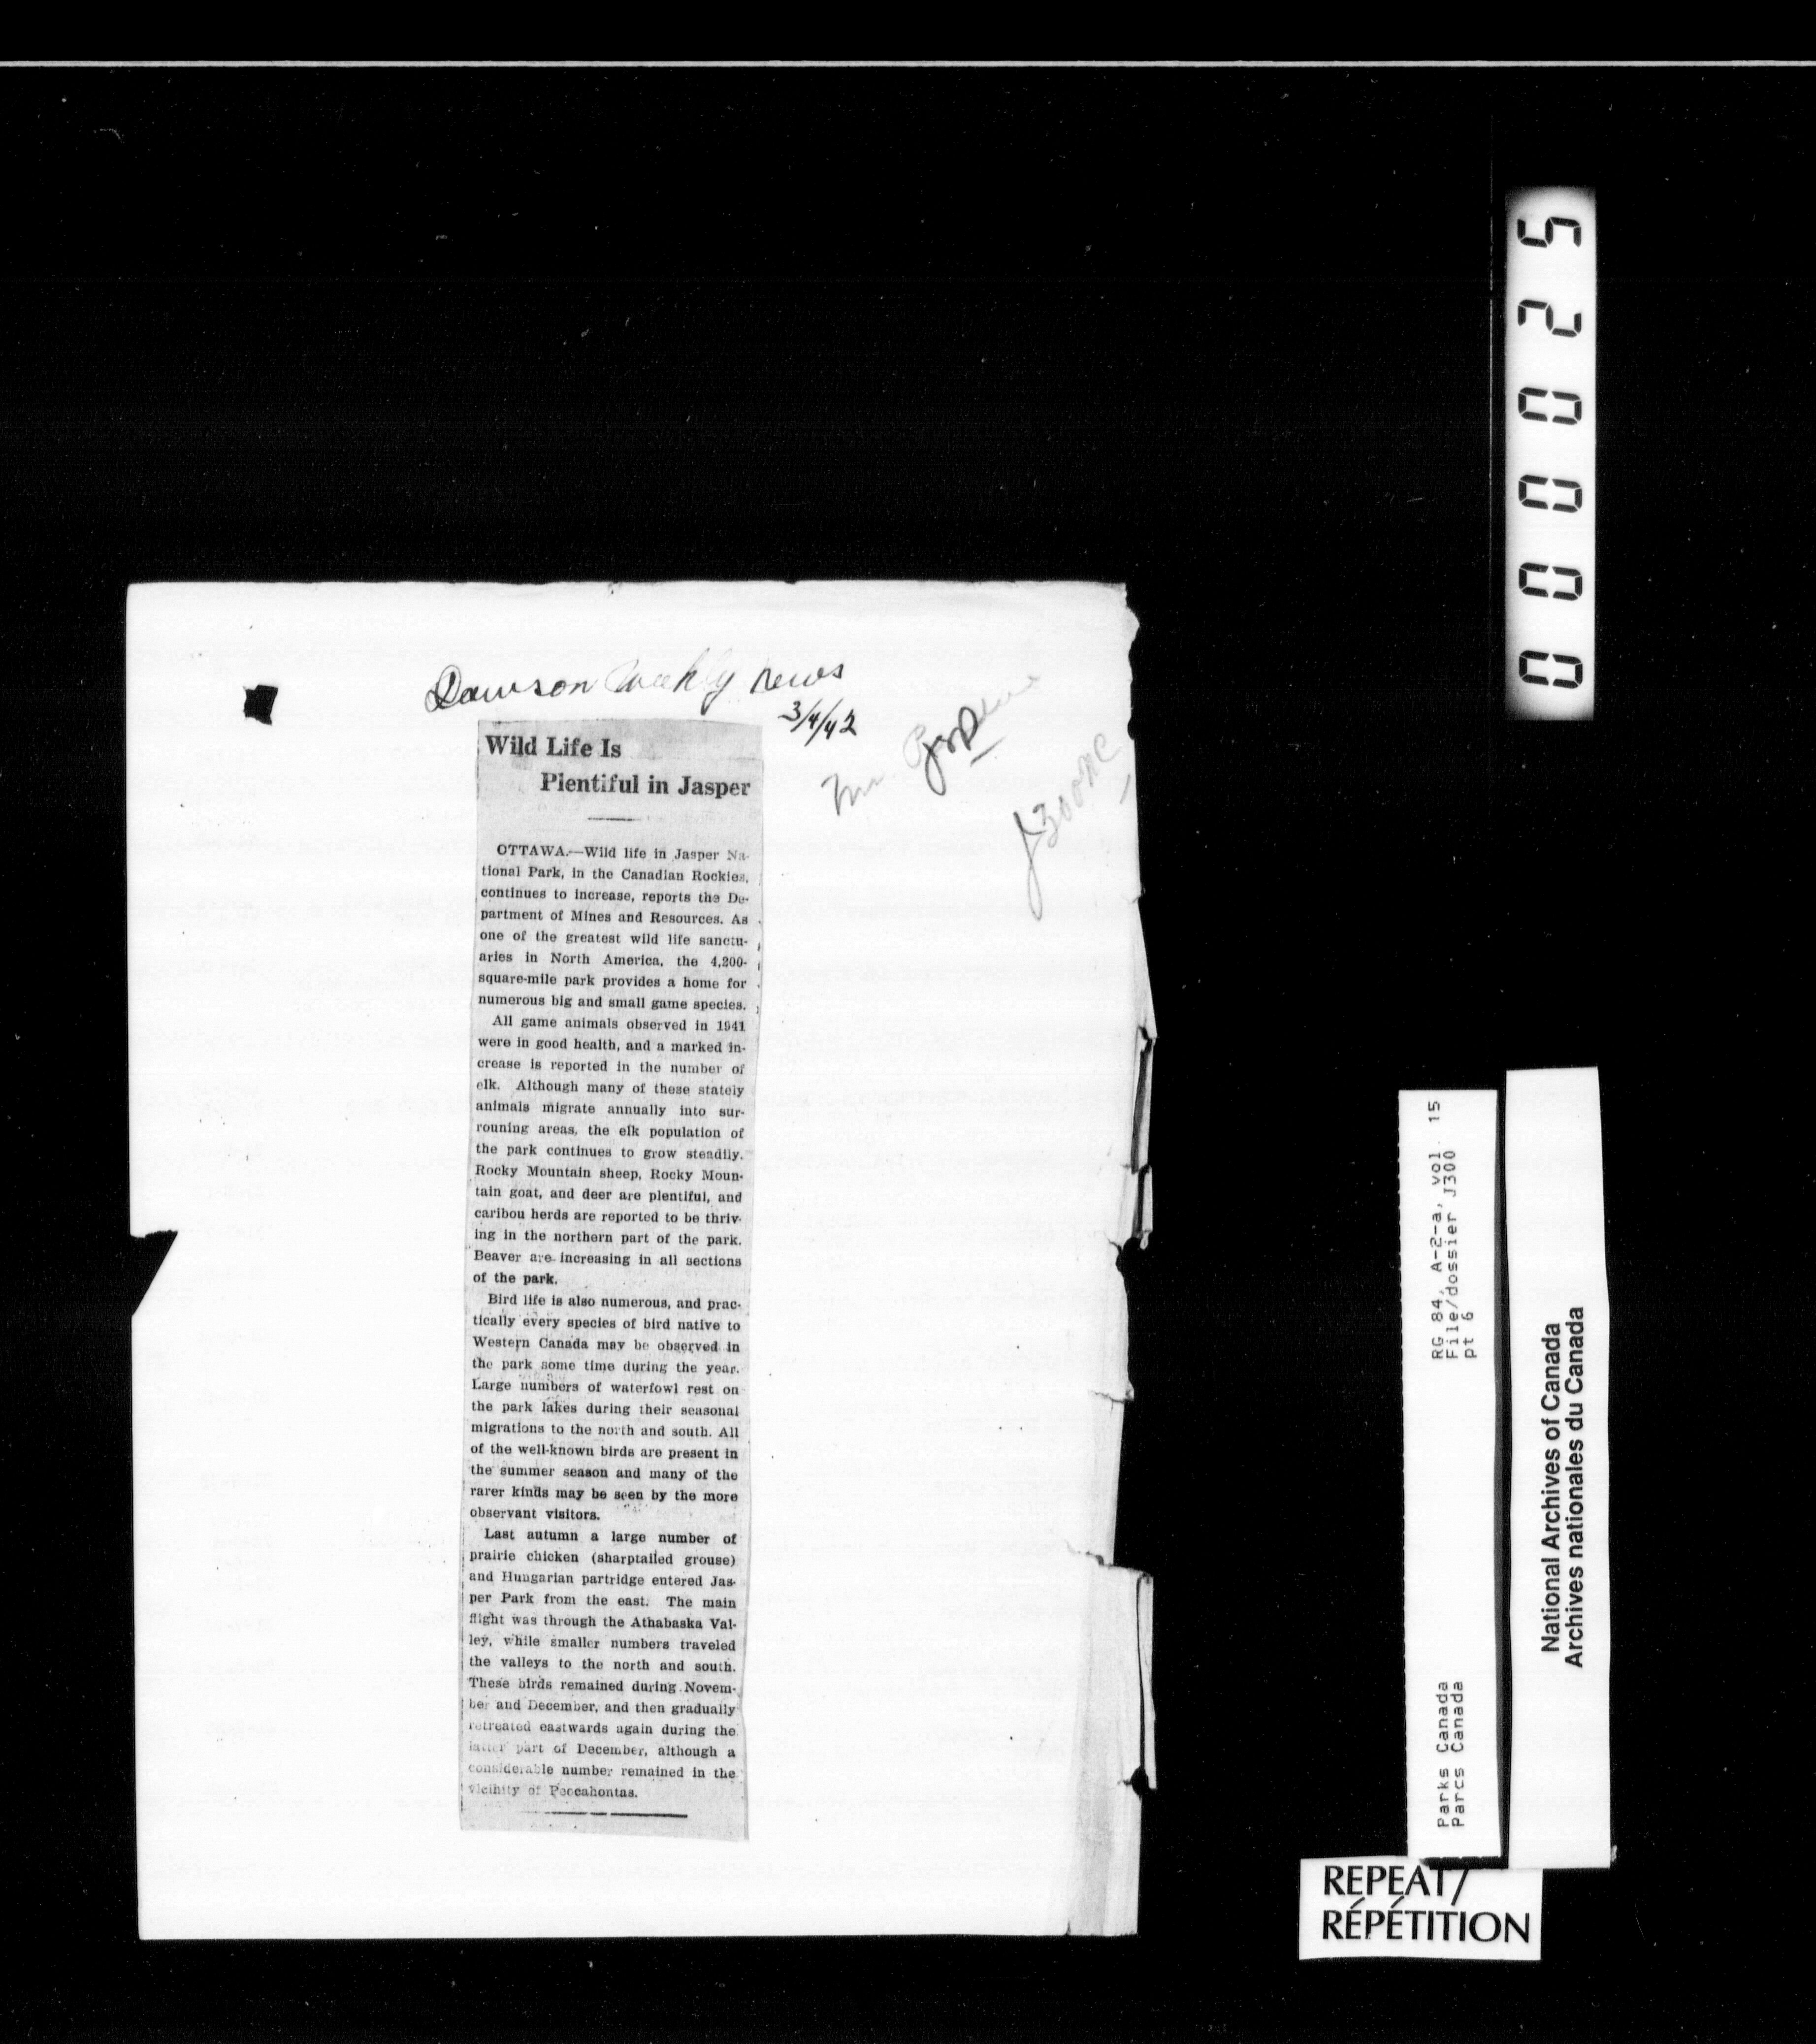 Dawson Weekly News
3/4/42
Mr.
J300
Wild Life Is
Plentiful in Jasper
OTTAWA.—Wild life in Jasper Na-
tional Park, in the Canadian Rockies,
continues to increase, reports the De-
partment of Mines and Resources. As
one of the greatest wild life sanctu-
aries in North America, the 4,200-
square-mile park provides a home for
numerous big and small game species.
All game animals observed in 1941
were in good health, and a marked in-
crease is reported in the number of
elk. Although many of these stately
animals migrate annually into sur-
rouning areas, the elk population of
the park continues to grow steadily.
Rocky Mountain sheep, Rocky Moun-
tain goat, and deer are plentiful, and
caribou herds are reported to be thriv-
ing in the northern part of the park.
Beaver are increasing in all sections
of the park.
Bird life is also numerous, and prac-
tically every species of bird native to
Western Canada may be observed in
the park some time during the year.
Large numbers of waterfowl rest on
the park lakes during their seasonal
migrations to the north and south. All
of the well-known birds are present in
the summer season and many of the
rarer kinds may be seen by the more
observant visitors.
Last autumn a large number of
prairie chicken (sharptailed grouse)
and Hungarian partridge entered Jas-
per Park from the east. The main
flight was through the Athabaska Val-
ley, while smaller numbers traveled
the valleys to the north and south.
These birds remained during Novem-
ber and December, and then gradually
retreated eastwards again during the
latter part of December, although a
considerable number remained in the
vicinity of Poccahontas.
000025
RG 84, A-2-a, vol. 15
File/dossier J300
pt 6
Parks Canada
Parcs Canada
National Archives of Canada
Archives nationales du Canada
REPEAT/
RÉPÉTITION